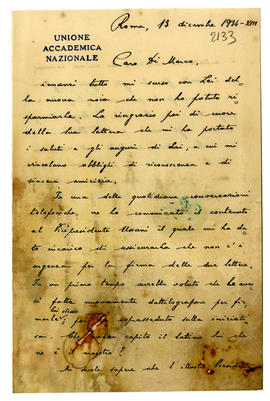 Roma, 13 dicembre 1934-XIII
2133
UNIONE
ACCADEMICA
NAZIONALE
Caro Di Marco,
innanzi tutto mi scuso con Lei del-
la nuova noia che non ho potuto ri-
sparmiarle. La ringrazio poi di cuore
della sua lettera che mi ha portato
i saluti e gli auguri di Lei, a cui mi
vincolano obblighi di riconoscenza e di
sincera amicizia.
In una delle quotidiane conversazioni
telefoniche, ne ho comunicato il contenuto
al Presidente Ussani il quale mi ha da-
to incarico di assicurarla che non c'è
urgenza per la firma delle due lettere.
In un primo tempo avrebbe voluto che
si fatta nuovamente dattilografare per fir-
marle; poi ha soprasseduto sulla iniziati
va. capito il latino lui che
ne è il maestro?
Mi duole sapere che l'illustre Presidente